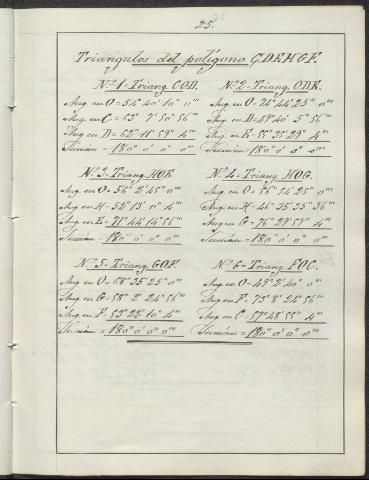 25.
Triangulos del polígono C.D.E.H.G.F.
Nº 1 = Triang. C.O.D.
Ang en O = 54° 40' 10" 0'''
Ang. en C = 63° 7' 50" 56'''
Ang. en D = 62° 11' 59" 4'''
Suman = 180° 0' 0" 0'''
Nº 2 = Triang. O.D.E.
Ang en O = 74° 44' 25" 0'''
Ang. en D = 49° 40' 5" 56'''
Ang en E = 55° 35' 29" 4'''
Suman = 180° 0' 0" 0'''
Nº 3 = Triang. H.O.E.
Ang. en O = 56° 2' 45" 0'''
Ang. en H = 52° 13' 0" 4'''
Ang. en E = 71° 44' 14" 56'''
Suman = 180° 0' 0" 0'''
Nº 4 = Triang. H.O.G.
Ang. en O = 56° 54' 25" 0'''
Ang. en H = 46° 35' 35" 56'''
Ang en G = 76° 29' 59" 4'''
Suman = 180° 0' 0" 0'''
Nº 5 = Triang. G.O.F.
Ang. en O = 68° 35' 25" 0'''
Ang. en G = 58° 2' 24" 56'''
Ang. en F = 53° 22' 10" 4'''
Suman = 180° 0' 0" 0'''
Nº 6 = Triang F.O.C.
Ang. en O = 49° 2' 40" 0'''
Ang. en F = 73° 8' 24" 56'''
Ang. en C = 57° 48' 55" 4'''
Suman = 180° 0' 0" 0'''